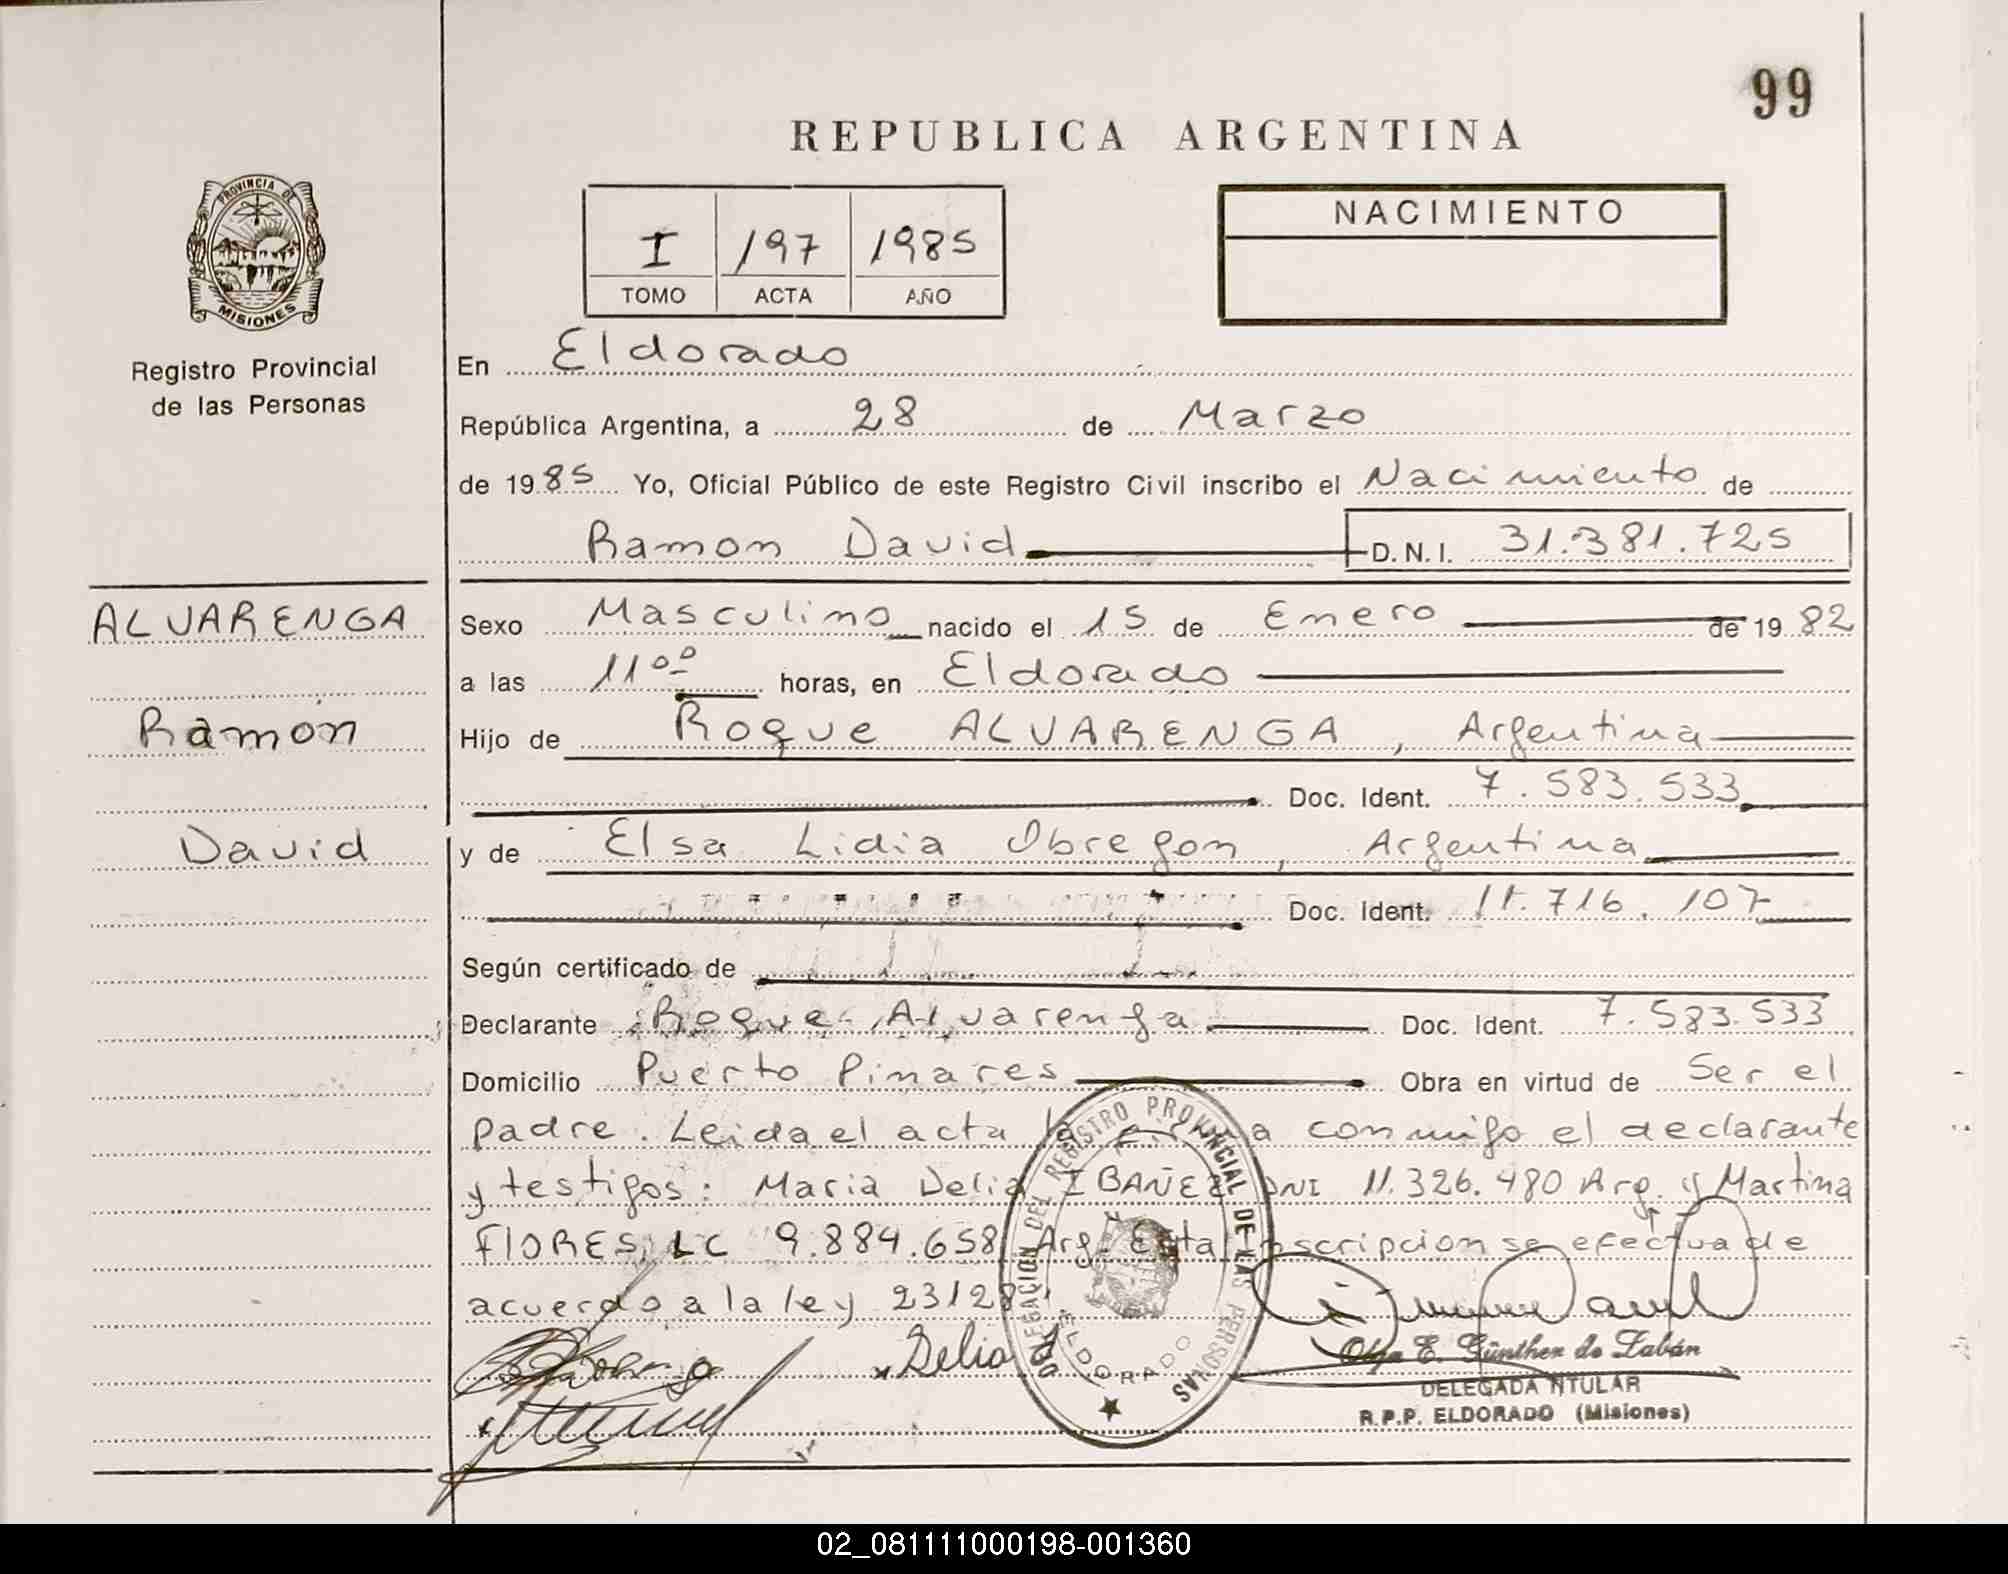 99
REPUBLICA ARGENTINA
PROVINCIA DE
MISIONES
Registro Provincial
de las Personas
I 197 1985
TOMO ACTA AÑO
NACIMIENTO
En Eldorado
República Argentina, a 28 de Marzo
de 1985 Yo, Oficial Público de este Registro Civil inscribo el Nacimiento de
Ramon David D.N.I. 31.381.725
ALVARENGA
Ramón
David
Sexo Masculino nacido el 15 de Enero de 1982
a las 11oo horas, en Eldorado
Hijo de Roque ALVARENGA, Argentina
Doc. Ident. 7.583.533
y de Elsa Lidia Obregon, Argentina
Doc. Ident. 11.716.107
Según certificado de
Declarante Roque Alvarenga Doc. Ident. 7.583.533
Domicilio Puerto Pinares Obra en virtud de Ser el
padre. Leida el acta la a conmigo el declarante
y testigos: Maria Delia IBAÑEZ DNI 11.326.480 Arg. y Martina
FlORES, LC 9.884.658 Arg. Esta inscripcion se efectua de
acuerdo a la ley 23128
DELEGACION DEL REGISTRO PROVINCIAL DE LAS PERSONAS
ELDORADO
Delia
Olga E. Günther de Zabán
DELEGADA TITULAR
R.P.P. ELDORADO (Misiones)
02_081111000198-001360